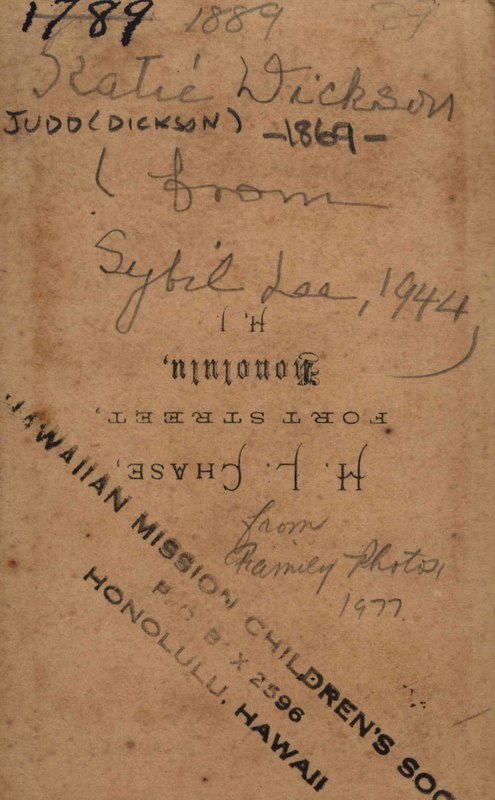 1789 1889 27
Katie Dickson
JUDD (DICKSON) -1869-
(from
Sybil Lee, 1944)
H. L. CHASE,
FORT STREET,
Honolulu,
H. I.
from
Family Photos,
1977
HAWAIIAN MISSION CHILDREN'S SOC
P O B X 2596
HONOLULU, HAWAII